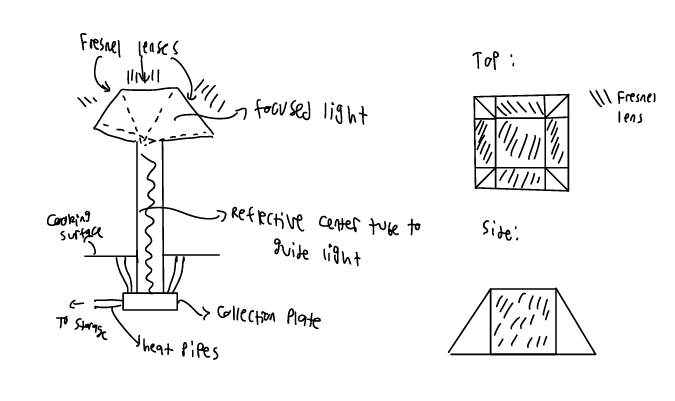 Fresnel lenses
focused light
Reflective center tube to
guide light
Cooking
surface
Collection Plate
To storage
heat pipes
Top:
Fresnel
lens
Side: